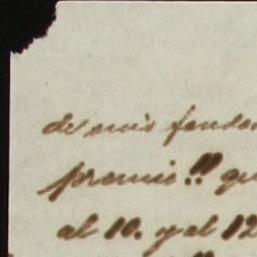 de mis fundo
premio!! qu
al 10. y al 12